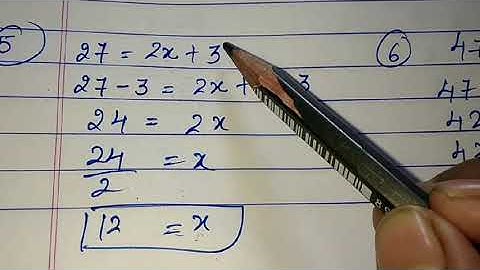 5 27 = 2x + 3
27 - 3 = 2x + 3
24 = 2x
24/2 = x
12 = x
6 47
47
42
42